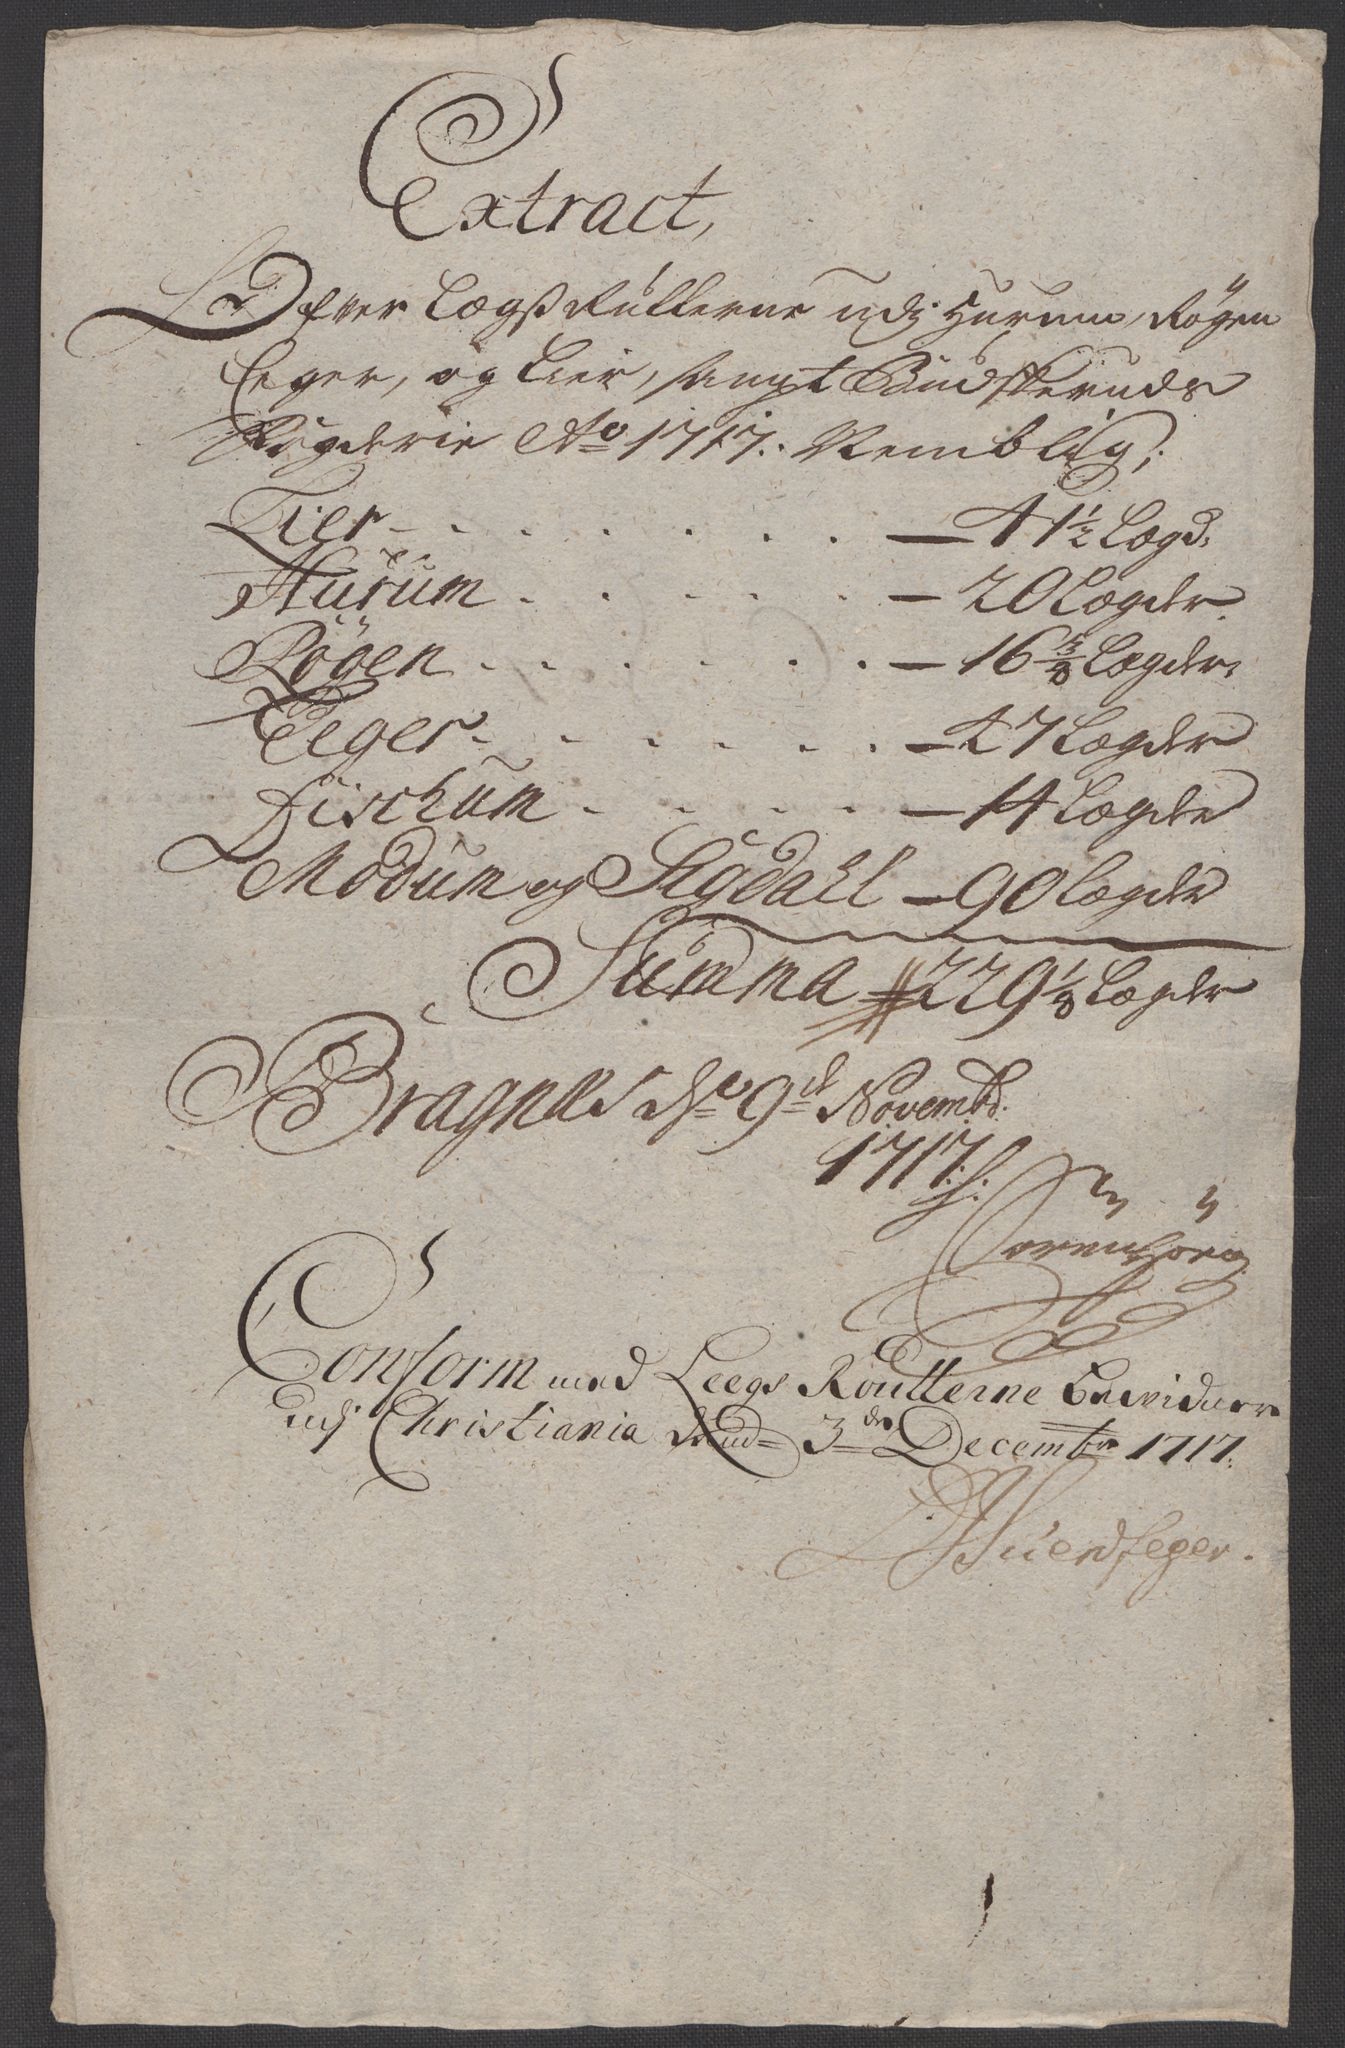 Extract,
Efter Lægs Rullerne udj Hurum, Røgen
Eeger, og Lier, sampt Buudskeruds
Fogderie Ao 1717. Nemblig;
Lier - . . . . . . . — 41½ Lægd:
Hurum . . . . . . — 20 Lægder.
Røgen . . . . . . . — 16 5/8 Lægder.
Eeger . . . . . . . — 47 Lægder
Fischum . . . . . — 14 Lægder
Modum og Sigdahl — 90 Lægder
Summa # 229 1/8 Lægder
Bragnæs dend 9de Novembr:
1717.
Conform med Leegs Roullerne bewidner
udj Christiania dend 3de Decembr 1717.